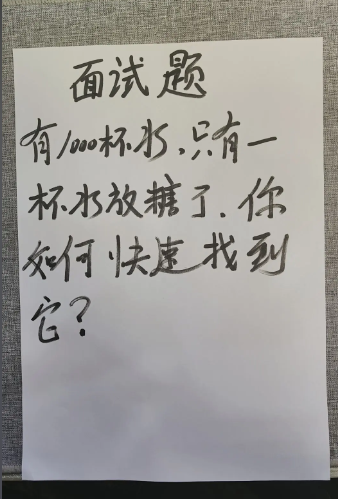 面试题
有1000杯水,只有一
杯水放糖了.你
如何快速找到
它?